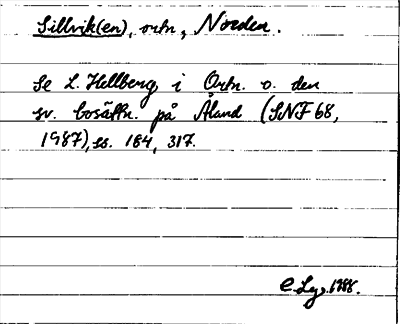 Sillvik(en), ortn., Norden.
Se L. Hellberg i Ortn. o. den
sv. bosättn. på Åland (SNF 68,
1987), ss. 184, 317.
1988.